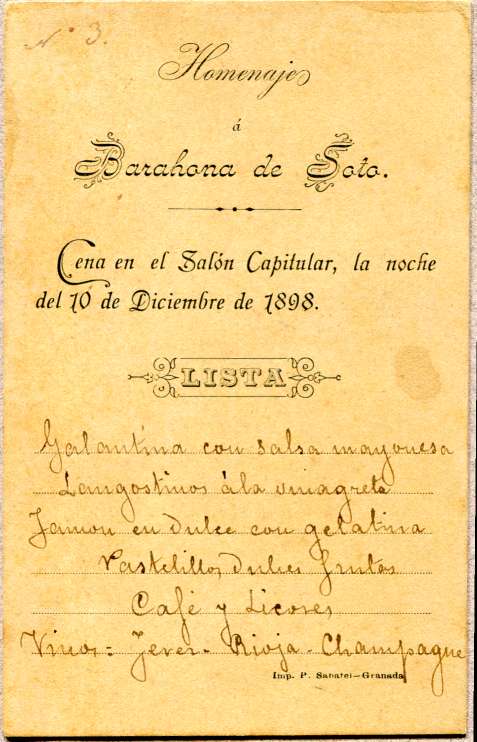 Nº 3.
Homenaje
á
Barahona de Soto.
Cena en el Salón Capitular, la noche
del 10 de Diciembre de 1898.
LISTA
Galantina con salsa mayonesa
Langostinos á la vinagreta
Jamon en dulce con gelatina
Pastelillos, dulces frutas
Café y Licores
Vinos = Jerez - Rioja - Champagne
Imp. P. Sabatel—Granada